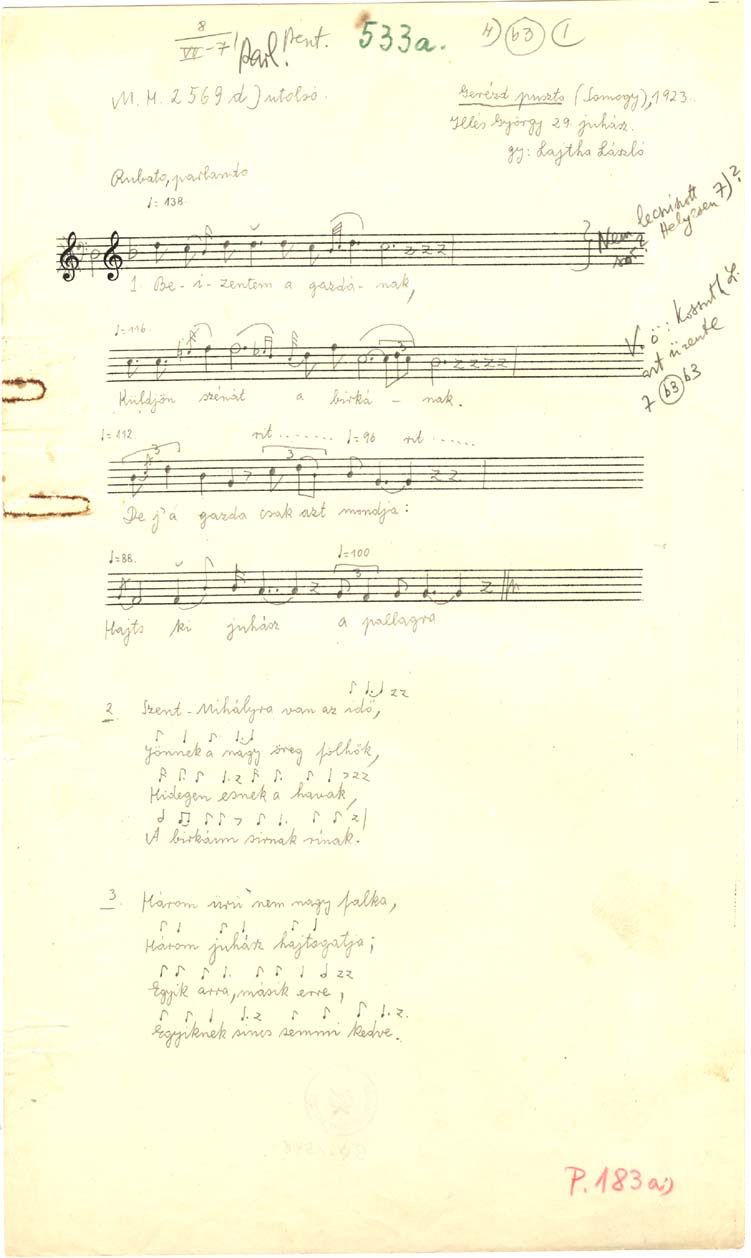 8
VII-7
Parl. Pent. 533a. 4) b3 1
M. H. 2569 d) utolsó.
Gerézd puszta (Somogy), 1923.
Illés György 29. juhász.
gy: Lajtha László
Rubato, parlando
♩= 138.
Nem
Helyesen 7)?
1. Be-i-zentem a gazdá-nak,
♩=116.
V. ö: Kossuth L.
azt üzente
7 b3 b3
Küldjön szénát a birká-nak.
♩=112. rit........ ♩=96 rit......
De j'a gazda csak azt mondja:
♩=88. ♩=100
Hajts ki juhász a pallagra
2 Szent-Mihályra van az idő,
Jönnek a nagy öreg fölhők,
Hidegen esnek a havak,
A birkáim sirnak rínak.
3. Három ürü nem nagy falka,
Három juhász hajtogatja;
Egyik arra, másik erre,
Egyiknek sincs semmi kedve.
P. 183a)